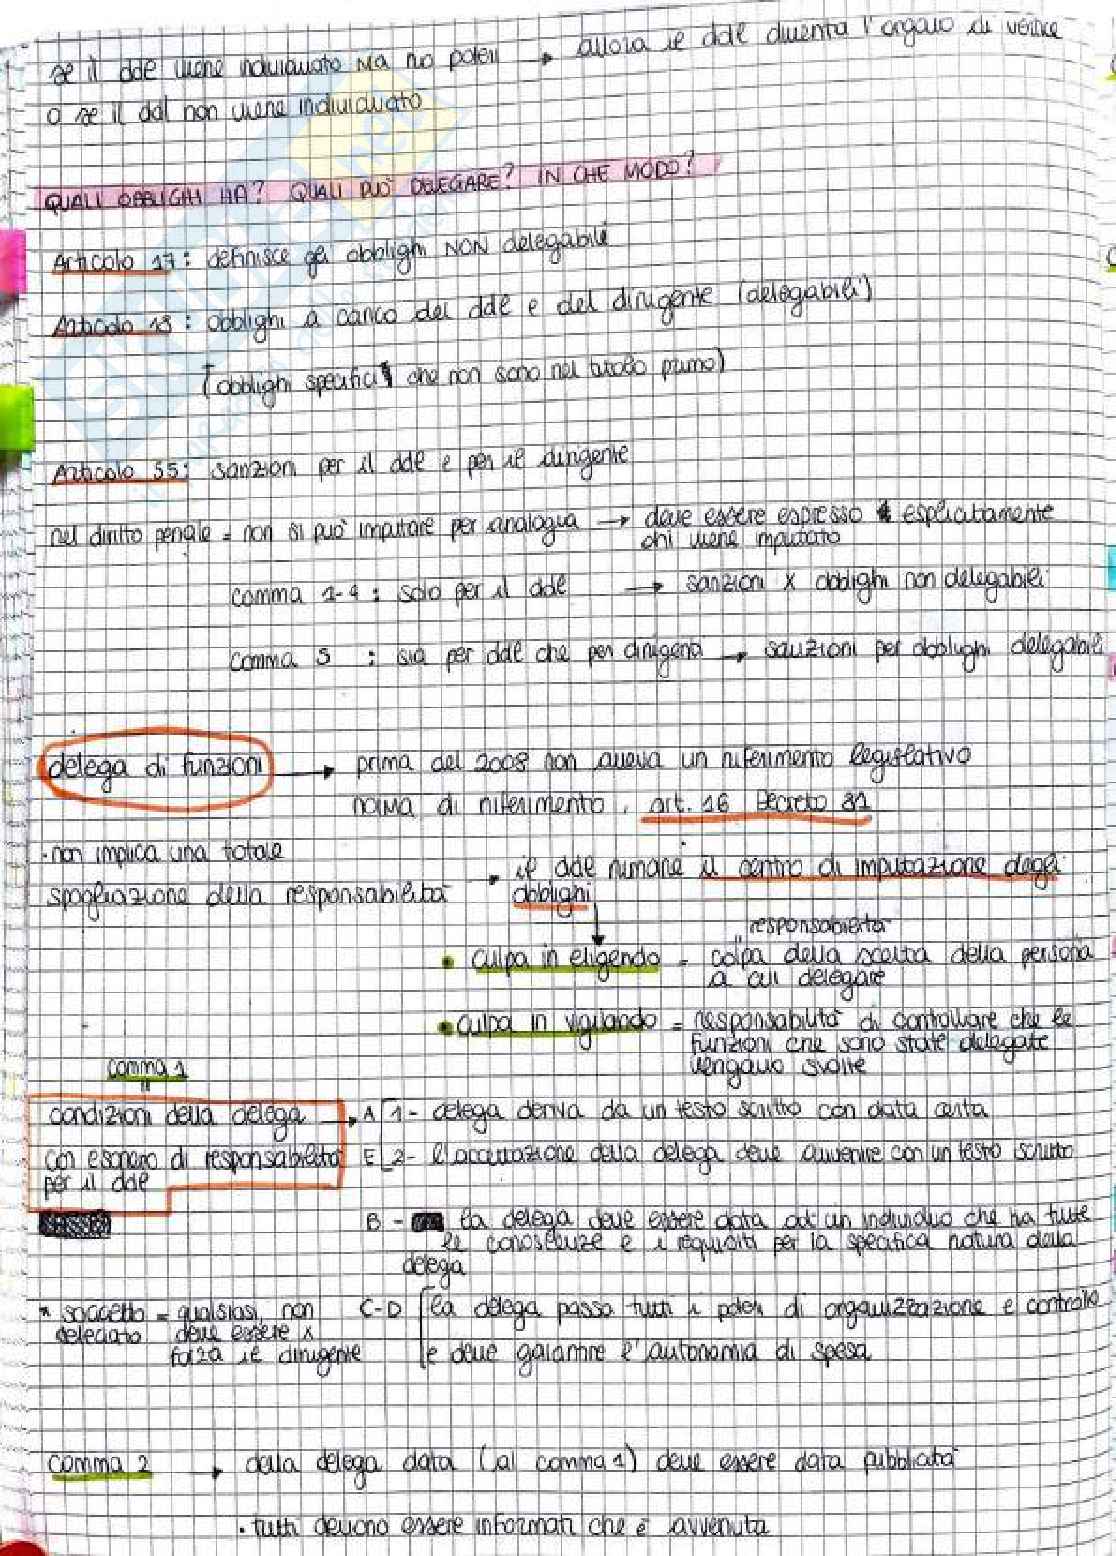 se il ddl viene individuato ma no poteri → allora il ddl diventa l'organo di vertice
o se il ddl non viene individuato
QUALI OBBLIGHI HA? QUALI PUÒ DELEGARE? IN CHE MODO?
Articolo 17: definisce gli obblighi NON delegabili
Articolo 18: obblighi a carico del ddl e del dirigente (delegabili)
(obblighi specifici che non sono nel titolo primo)
Articolo 55: sanzioni per il ddl e per il dirigente
nel diritto penale = non si può imputare per analogia → deve essere espresso esplicitamente
chi viene imputato
comma 1-4: solo per il ddl → sanzioni x obblighi non delegabili
comma 5 : sia per ddl che per dirigenti → sanzioni per obblighi delegabili
delega di funzioni → prima del 2008 non aveva un riferimento legislativo
norma di riferimento. art. 16 Decreto 81
· non implica una totale
spogliazione della responsabilità → il ddl rimane il centro di imputazione degli
obblighi
responsabilità
• culpa in eligendo = colpa della scelta della persona
a cui delegare
• culpa in vigilando = responsabilità di controllare che le
funzioni che sono state delegate
vengano svolte
comma 1
"
condizioni della delega → A 1- delega deriva da un testo scritto con data certa
con esonero di responsabilità E 2- l'accettazione della delega deve avvenire con un testo scritto
per il ddl
B - la delega deve essere data ad un individuo che ha tutte
le conoscenze e i requisiti per la specifica natura della
delega
* soggetto = qualsiasi, non C-D la delega passa tutti i poteri di organizzazione e controllo
delegato deve essere x
forza il dirigente e deve garantire l'autonomia di spesa
comma 2 → della delega data (al comma 1) deve essere data pubblicità
· tutti devono essere informati che è avvenuta